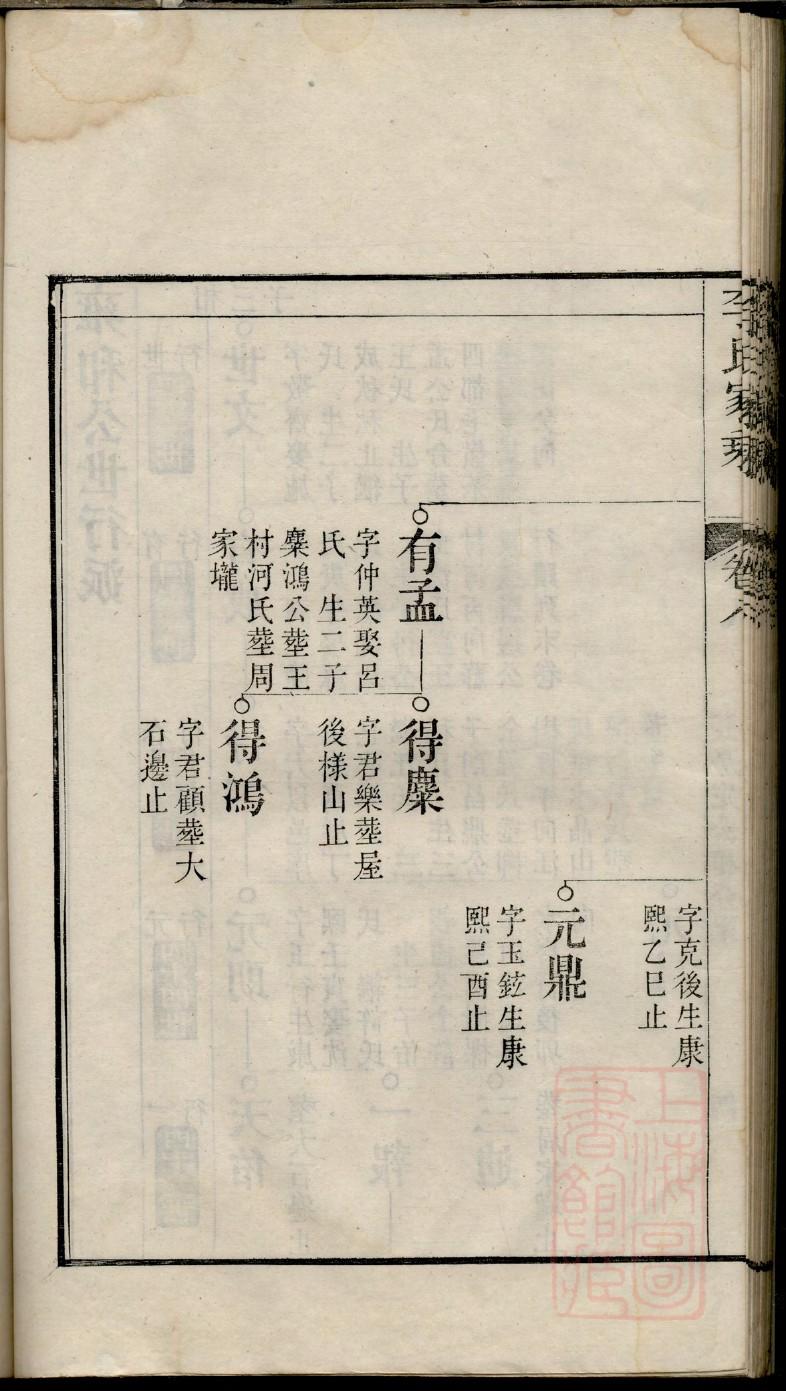 李氏家乘
卷六
字克後生康
熙乙巳止
元鼎
字玉鉉生康
熙己酉止
有孟
字仲英娶呂
氏 生二子
麋鴻公塟王
村河氏塟周
家壠
得麋
字君樂塟屋
後様山止
得鴻
字君顧塟大
石邊止
上海圖
書館藏